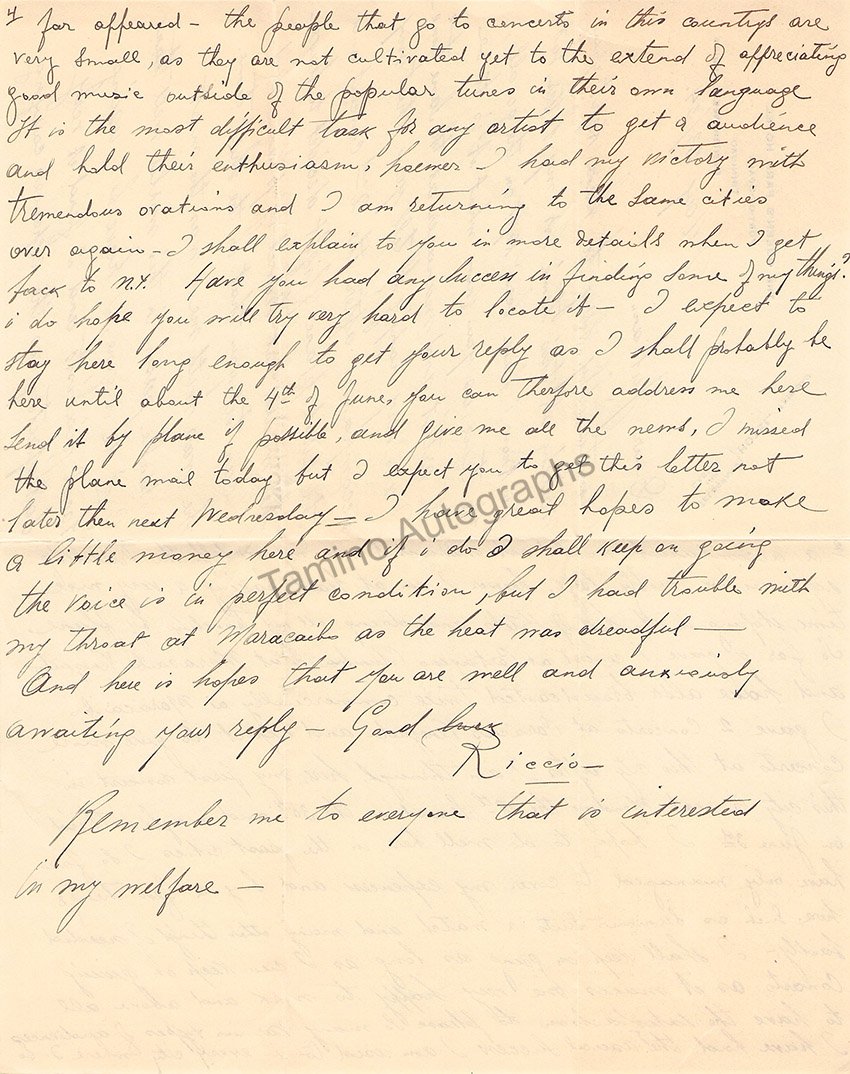 4 far appeared - the people that go to concerts in this countrys are
very small, as they are not cultivated yet to the extend of appreciating
good music outside of the popular tunes in their own language
It is the most difficult task for any artist to get a audience
and hold their enthusiasm, I had my victory with
tremendous ovations and I am returning to the same cities
over again - I shall explain to you in more details when I get
back to N.Y. Have you had any success in finding some of my things?
i do hope you will try very hard to locate it - I expect to
stay here long enough to get your reply as I shall probably be
here until about the 4th of June, you can therfore address me here
send it by plane if possible, and give me all the news, I missed
the plane mail today but I expect you to get this letter not
later then next Wednesday - I have great hopes to make
a little money here and if i do I shall keep on going
the voice is in perfect condition, but I had trouble with
my throat at Maracaibo as the heat was dreadful -
And here is hopes that you are well and anxiously
awaiting your reply - Good luck
Riccio -
Remember me to everyone that is interested
in my welfare -
Tamino Autographs